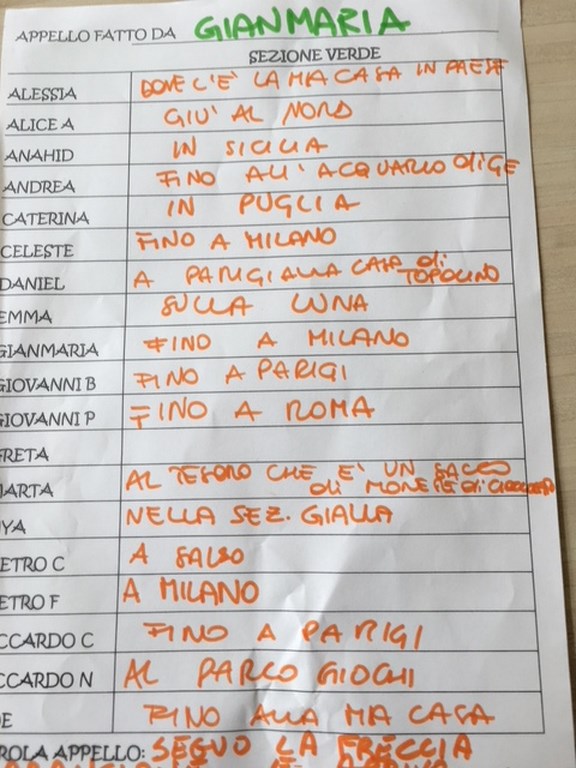 APPELLO FATTO DA GIANMARIA
SEZIONE VERDE
ALESSIA DOVE C'E' LA MIA CASA IN PAESE
ALICE A GIU' AL NORD
ANAHID IN SICILIA
ANDREA FINO ALL'ACQUARIO di GE
CATERINA IN PUGLIA
CELESTE FINO A MILANO
DANIEL A PARIGI ALLA CASA di TOPOLINO
EMMA SULLA LUNA
GIANMARIA FINO A MILANO
GIOVANNI B FINO A PARIGI
GIOVANNI P FINO A ROMA
RETA
ARTA AL TESORO CHE E' UN SACCO
di MONETE di
YA NELLA SEZ. GIALLA
ETRO C A
ETRO F A MILANO
CCARDO C FINO A PARIGI
CCARDO N AL PARCO GIOCHI
E FINO ALLA MIA CASA
ROLA APPELLO: SEGUO LA FRECCIA